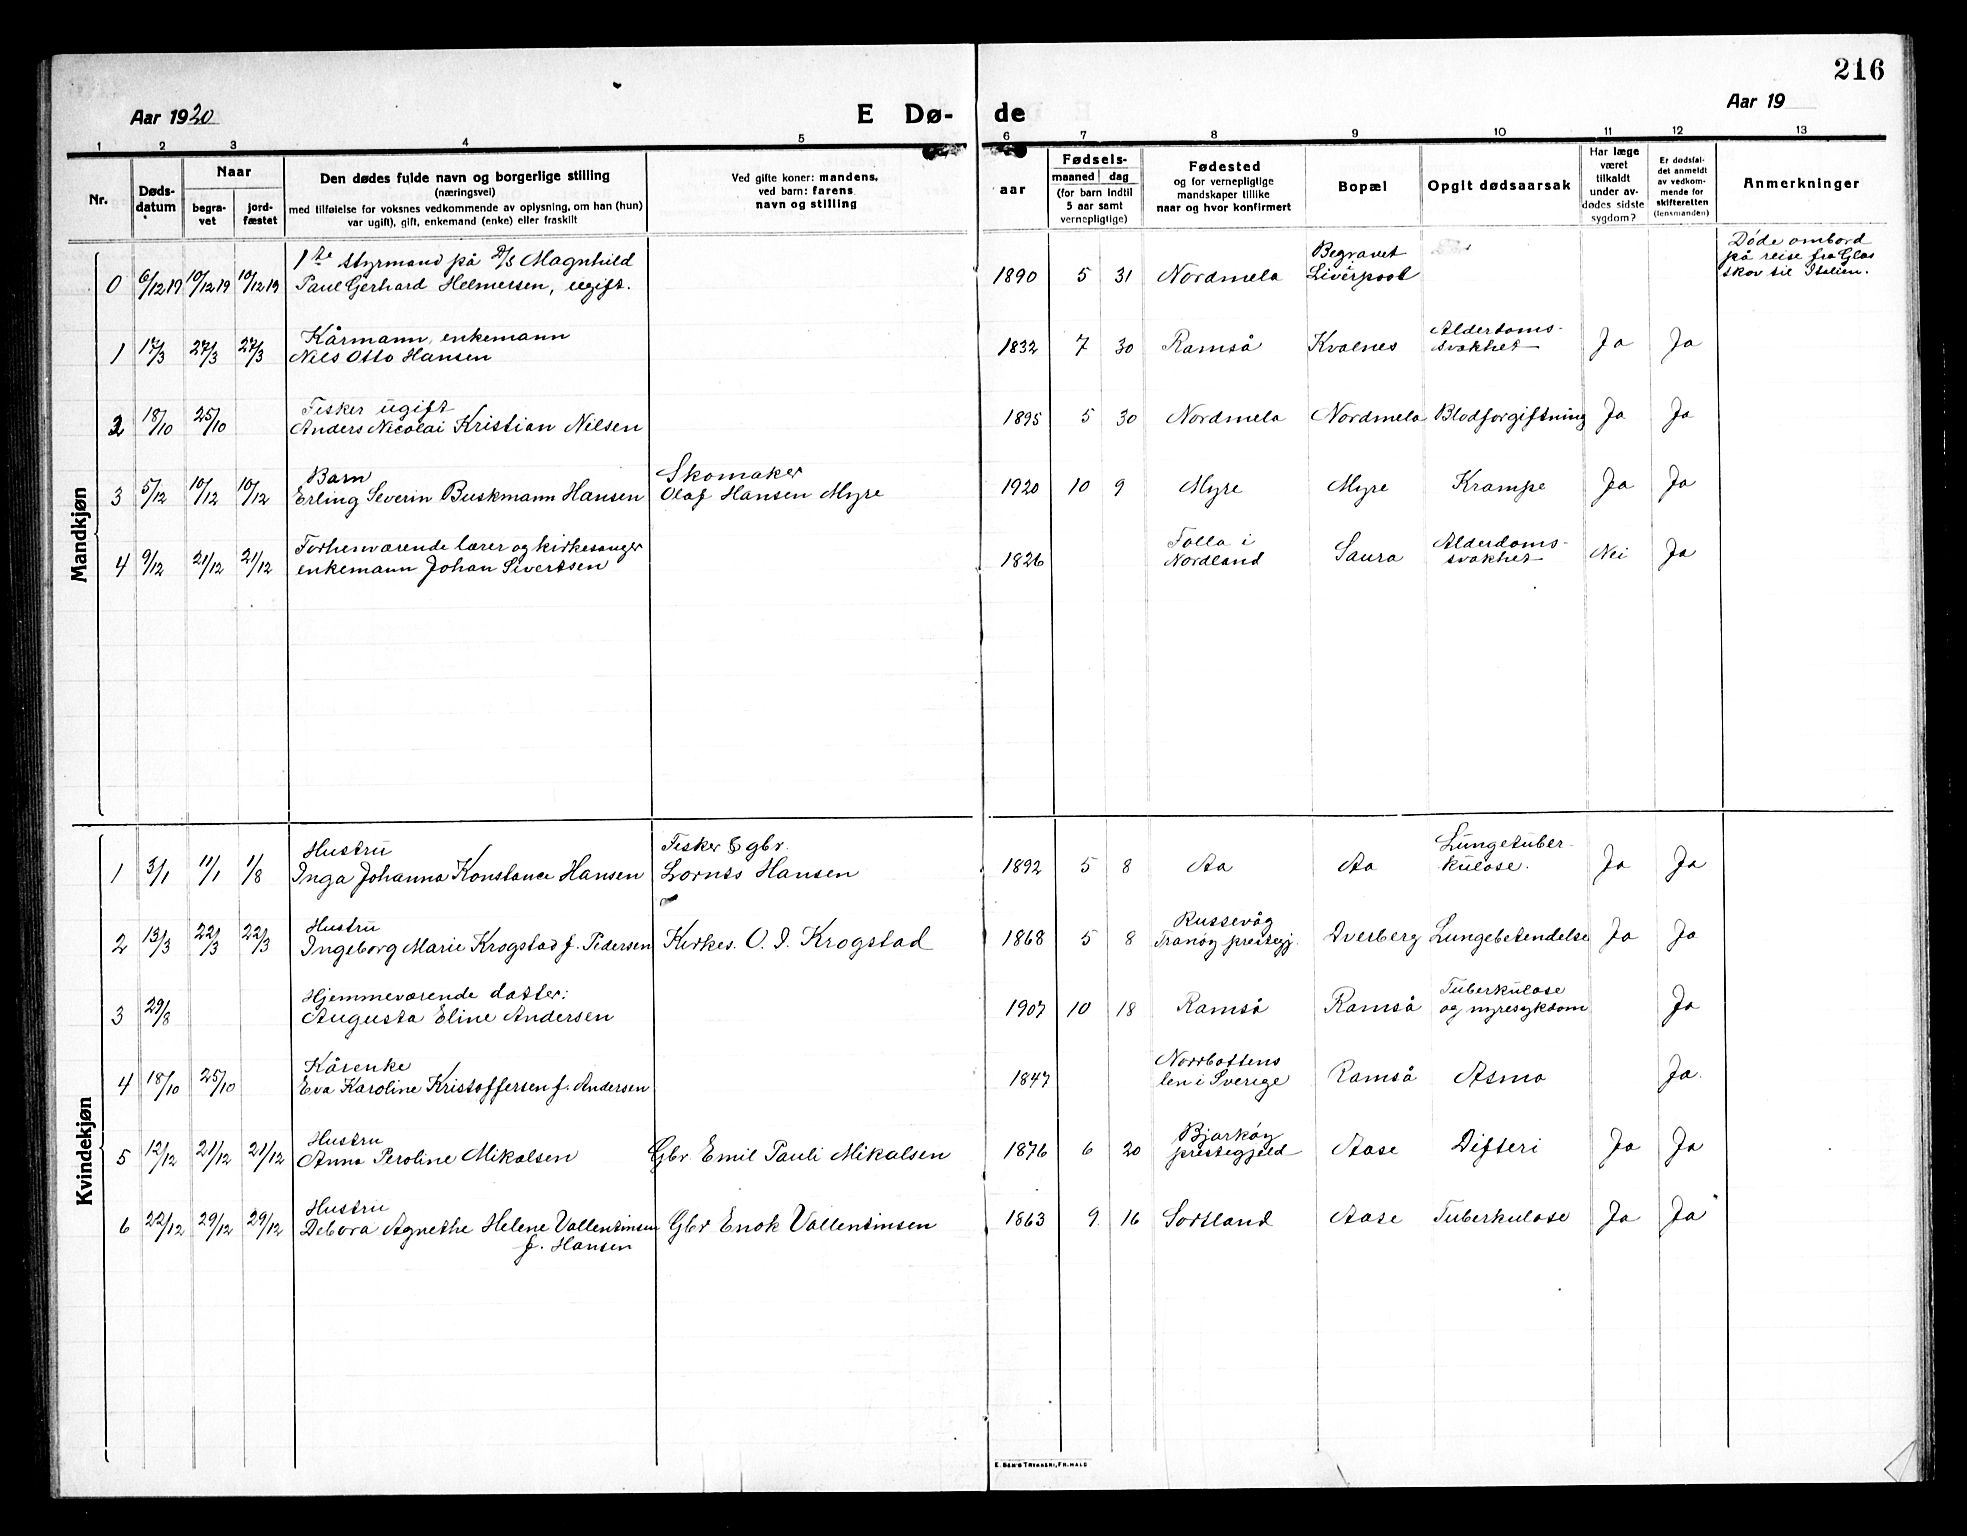 216
Aar 1920
E Dø-
de
Aar 19
1 2 3 4 5 6 7 8 9 10 11 12 13
Nr.
Døds-
datum
Naar
begra-
vet
jord-
fæstet
Den dødes fulde navn og borgerlige stilling
(næringsvei)
med tilføielse for voksnes vedkommende av oplysning, om han (hun)
var ugift, gift, enkemand (enke) eller fraskilt
Ved gifte koner: mandens,
ved barn: farens
navn og stilling
aar
Fødsels-
maaned dag
(for barn indtil
5 aar samt
vernepligtige)
Fødested
og for vernepligtige
mandskaper tillike
naar og hvor konfirmert
Bopæl
Opgit dødsaarsak
Har læge
været
tilkaldt
under av-
dødes sidste
sygdom?
Er dødsfal-
det anmeldt
av vedkom-
mende for
skifteretten
(lensmanden)
Anmerkninger
Mandkjøn
0 6/12 19 10/12 19 10/12 19
1ste styrmand på D/S Magnhild
Paul Gerhard Helmersen, ugift.
1890 5 31 Nordmela
Begravet
Liverpool
Døde ombord
på reise fra Glas
skov til Italien.
1 17/3 27/3 27/3
Kårmann, enkemann
Nils Otto Hansen
1832 7 30 Ramså Kvalnes
Alderdoms-
svakhet
Ja Ja
2 18/10 25/10
Fisker ugift
Anders Nicolai Kristian Nilsen
1895 5 30 Nordmela Nordmela Blodforgiftning Ja Ja
3 5/12 10/12 10/12
Barn
Erling Severin Buskmann Hansen
Skomaker
Olaf Hansen Myre
1920 10 9 Myre Myre Krampe Ja Ja
4 9/12 21/12 21/12
Forhenværende lærer og kirkesanger
enkemann Johan Sivertsen
1826
Folla i
Nordland
Saura
Alderdoms-
svakhet
Nei Ja
Kvindekjøn
1 3/1 11/1 1/8
Hustru
Inga Johanna Konstance Hansen
Fisker & gbr.
Lornts Hansen
1892 5 8 Aa Aa
Lungetuber-
kulose.
Ja Ja
2 13/3 22/3 22/3
Hustru
Ingeborg Marie Krogstad f. Pedersen
Kirkes. O. J. Krogstad
1868 5 8
Russevåg
Tranøy prestegj.
Dverberg Lungebetendelse Ja Ja
3 29/8
Hjemmeværende datter:
Augusta Eline Andersen
1907 10 18 Ramså Ramså
Tuberkulose
og nyresykdom
Ja
4 18/10 25/10
Kårenke
Eva Karoline Kristoffersen f. Andersen
1847
Norrbottens
len i Sverige
Ramså Asma Ja.
5 12/12 21/12 21/12
Hustru
Anna Peroline Mikalsen
Gbr Emil Pauli Mikalsen
1876 6 20
Bjarkøy
prestegjeld
Aase Difteri Ja Ja
6 22/12 29/12 29/12
Hustru
Debora Agnethe Helene Vallentinsen
f. Hansen
Gbr Enok Vallentinsen
1863 9. 16 Sortland Aase Tuberkulose Ja Ja
E. SEM'S TRYKKERI, FR.HALD